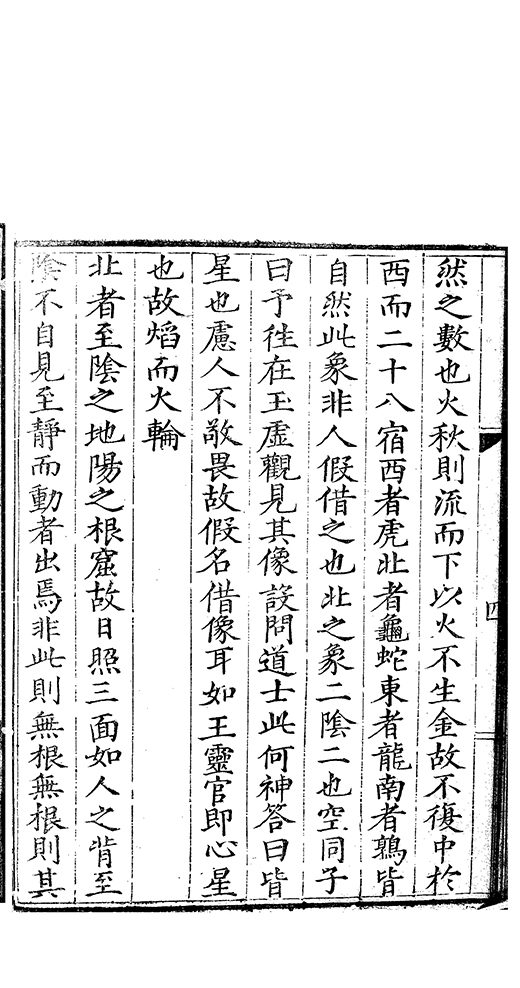 然之數也火秋則流而下以火不生金故不復中於
西而二十八宿西者虎北者龜蛇東者龍南者鶉皆
自然此象非人假借之也北之象二陰二也空同子
曰予往在玉虛觀見其像設問道士此何神答曰皆
星也慮人不敬畏故假名借像耳如王靈官即心星
也故焰而火輪
北者至陰之地陽之根窟故日照三面如人之背至
陰不自見至靜而動者出焉非此則無根無根則其
四